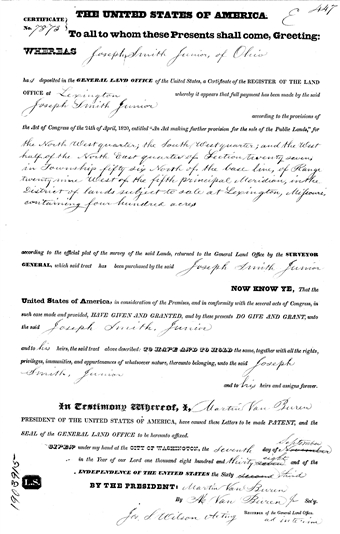 THE UNITED STATES OF AMERICA.
E 447
CERTIFICATE
No. 7873
To all to whom these Presents shall come, Greeting:
WHEREAS Joseph Smith Junior, of Ohio
had deposited in the GENERAL LAND OFFICE of the United States, a Certificate of the REGISTER OF THE LAND
OFFICE at Lexington whereby it appears that full payment has been made by the said
Joseph Smith Junior
according to the provisions of
the Act of Congress of the 24th of April, 1820, entitled "An Act making further provision for the sale of the Public Lands," for
the North West quarter, the South West quarter, and the West
half of the North East quarter of Section twenty seven
in Township fifty six North of the base line, of Range
twenty nine West of the fifth principal Meridian, in the
District of lands subject to sale at Lexington, Missouri,
containing four hundred acres
according to the official plat of the survey of the said Lands, returned to the General Land Office by the SURVEYOR
GENERAL, which said tract has been purchased by the said Joseph Smith Junior
NOW KNOW YE, That the
United States of America, in consideration of the Premises, and in conformity with the several acts of Congress, in
such case made and provided, HAVE GIVEN AND GRANTED, and by these presents DO GIVE AND GRANT, unto
the said Joseph Smith, Junior
and to his heirs, the said tract above described: TO HAVE AND TO HOLD the same, together with all the rights,
privileges, immunities, and appurtenances of whatsoever nature, thereunto belonging, unto the said Joseph
Smith, Junior
and to his heirs and assigns forever.
In Testimony Whereof, I, Martin Van Buren
PRESIDENT OF THE UNITED STATES OF AMERICA, have caused these Letters to be made PATENT, and the
SEAL of the GENERAL LAND OFFICE to be hereunto affixed.
September
GIVEN under my hand at the CITY OF WASHINGTON, the seventh day of
eight
in the Year of our Lord one thousand eight hundred and thirty and of the
INDEPENDENCE OF THE UNITED STATES the Sixty third
BY THE PRESIDENT: Martin Van Buren
By M. Van Buren Jr Sec'y.
Jos. S. Wilson Acting RECORDER of the General Land Office
ad interim
L.S.